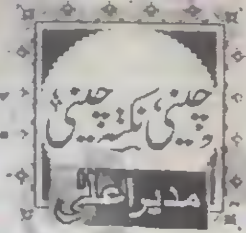 چینی، نکتہ چینی
مدیر اعلیٰ